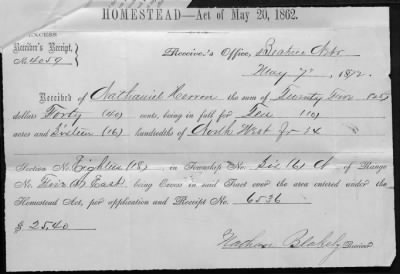 HOMESTEAD—Act of May 20, 1862.
EXCESS
Receiver's Receipt,
No. 4059
Receiver's Office, Beatrice Nebr
May 7th 1872.
Received of Nathaniel Herron the sum of Twenty Five (25)
dollars Forty (40) cents, being in full for Ten (10)
acres and Sixteen (16) hundredths of North West Qr 1/4
Section No. Eighteen (18), in Township No. Six (6) N of Range
No. East, being Excess in said Tract over the area entered under the
Homestead Act, per application and Receipt No. 6536
$ 25.40
Nathan Blakely Receiver